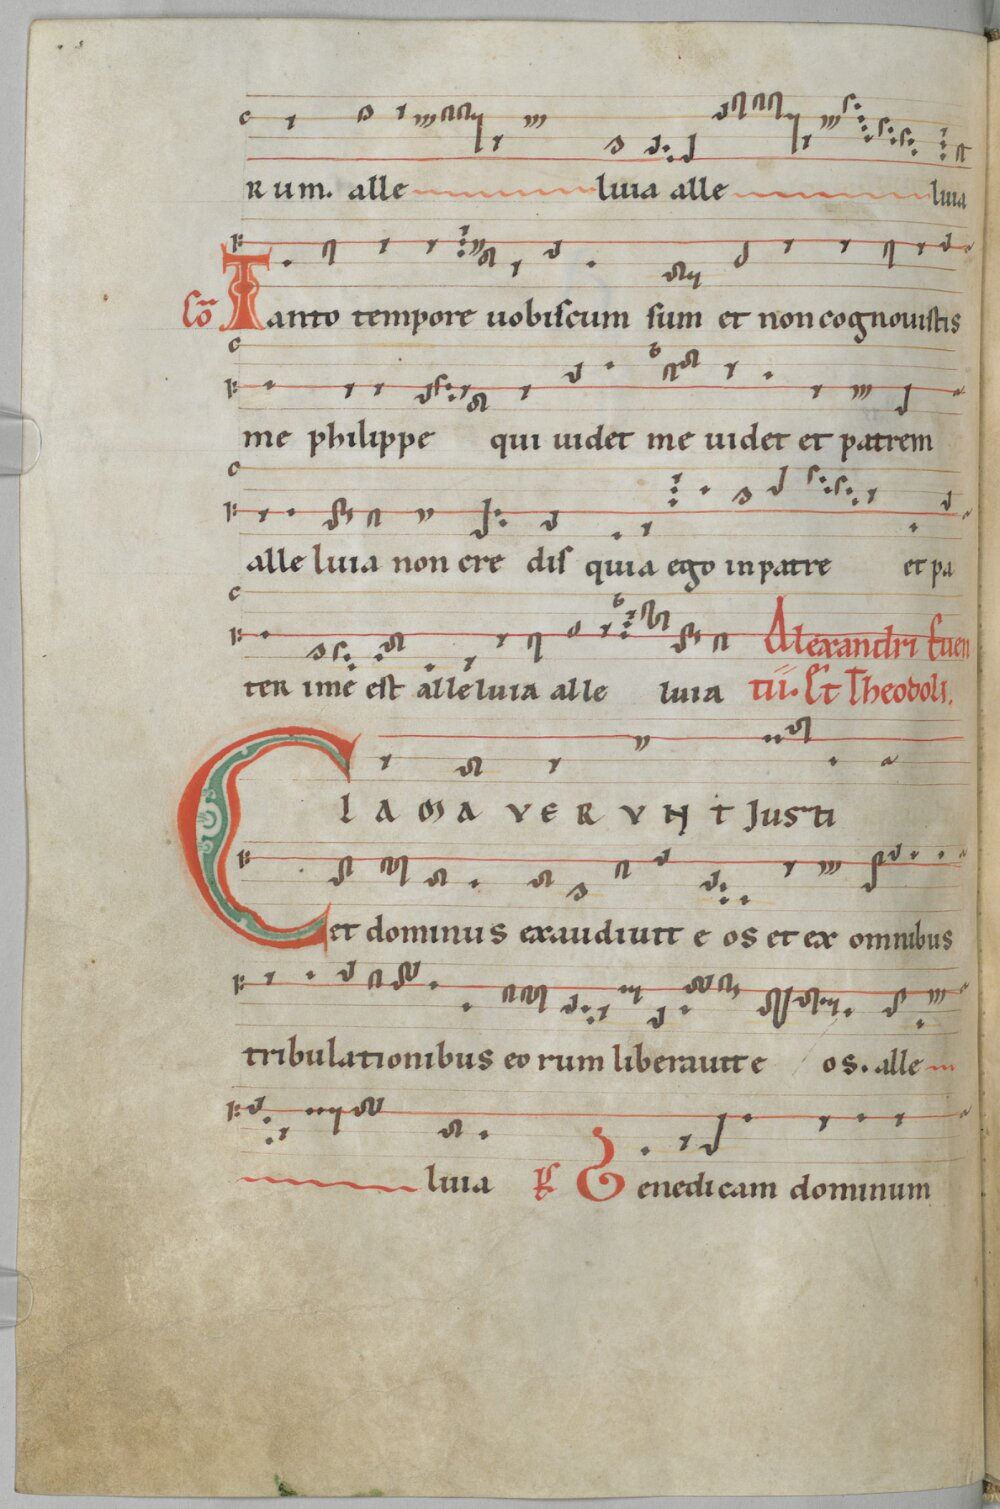 rum. alle luia alle luia
Co Tanto tempore uobiscum sum et non cognouistis
me philippe qui uidet me uidet et patrem
alle luia non cre dis quia ego in patre et pa
ter in me est alleluia alle luia Alexandri Euen
tii. Et Theodoli.
CLAMAVERVNT Justi
et dominus exaudiuit e os et ex omnibus
tribulationibus eo rum liberauit e os. alle
luia Ps Benedicam dominum